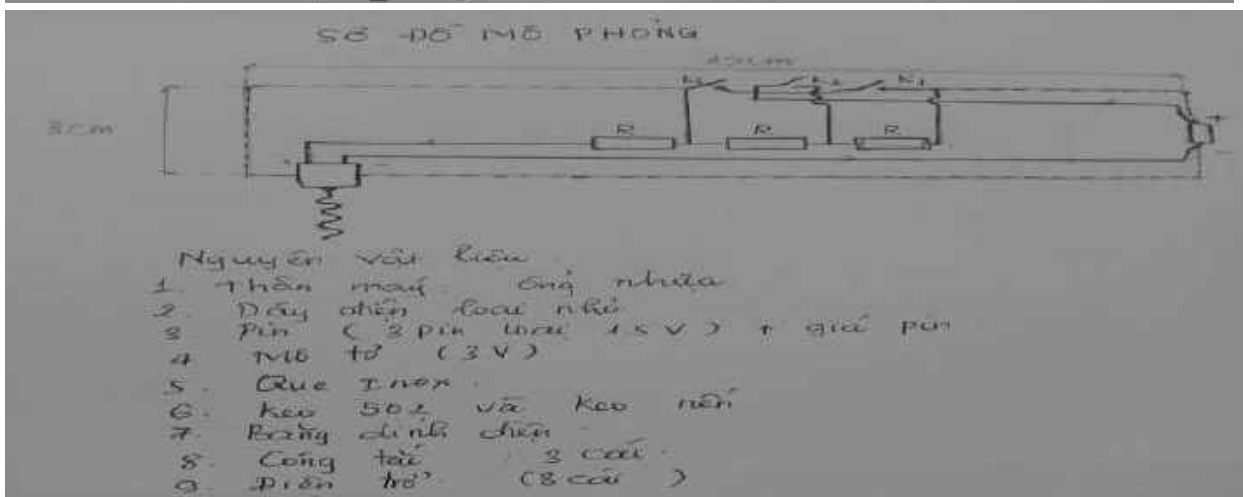 SƠ ĐỒ MÔ PHỎNG
3cm
K2 K1
R R R
+
-
Nguyên vật liệu
1. Thân máy ống nhựa
2. Dây điện loại nhỏ
3 Pin ( 2 pin loại 1.5 V ) + giá pin
4 Mô tơ (3V)
5. Que Inox.
6. Keo 502 và Keo nến
7. Băng dính điện.
8. Công tắc 3 cái.
9. Điện trở (3 cái )